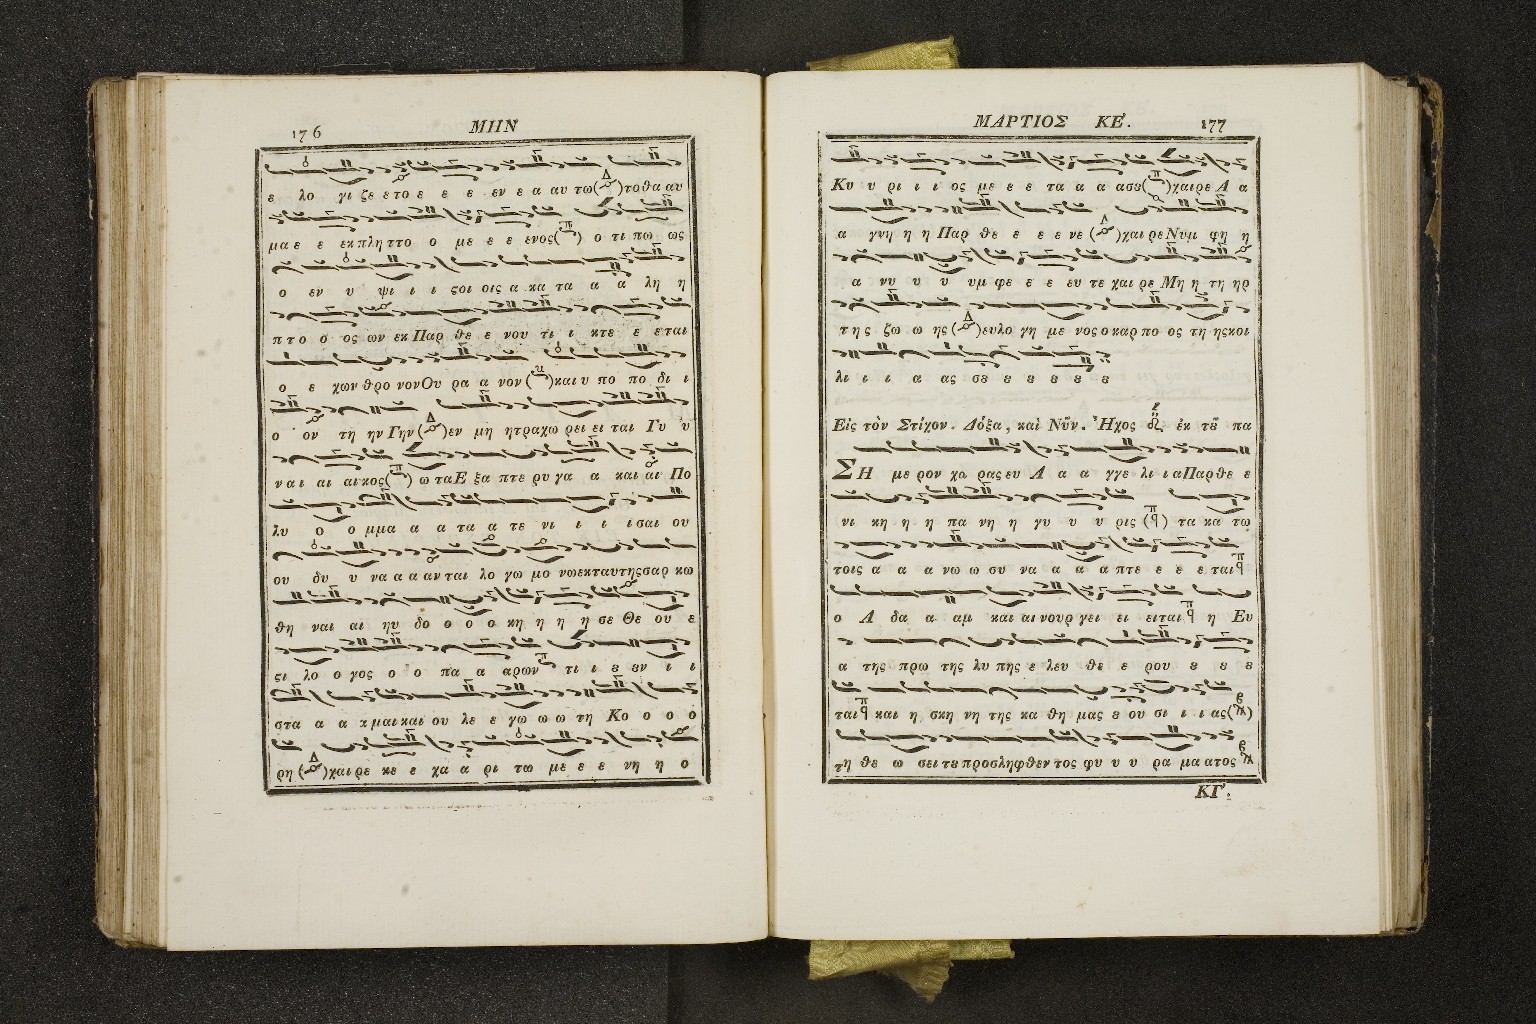 176 ΜΗΝ
ε λο γι ζε ε το ε ε ε εν ε α αυ τω(Δ)το θα αυ
μα ε ε εκ πλη ττο ο με ε ε ενος(π) ο τι πω ως
ο εν υ ψι ι ι ςοι οις α κα τα α α λη η
π το ο ος ων εκ Παρ θε ε νου τι ι κτε ε εται
ο ε χων θρο νον Ου ρα α νον ( )και υ πο πο δι ι
ο ον τη ην Γην(Δ)εν μη η τρα χω ρει ει ται Γυ υ
ναι αι αικος(π) ω τα Ε ξα πτε ρυ γα α και αι Πο
λυ ο ο μμα α α τα α τε νι ι ι ι σαι ου
ου δυ υ να α α αν ται λο γω μο νω εκ ταυ της σαρ κω
θη ναι αι ηυ δο ο ο ο κη η η η σε Θε ου ε
ςι λο ο γος ο ο πα α α ρων π τι ι ȣ ȣν ι ι
στα α α κ μαι και ου λε ε γω ω ω τη Κο ο ο ο
ρη (Δ)χαι ρε κε ε χα α ρι τω με ε ε νη η ο
ΜΑΡΤΙΟΣ ΚΕ΄. 177
Κυ υ ρι ι ι ος με ε ε τα α α α σȣ(π)χαι ρε Α α
α γνη η η Παρ θε ε ε ε νε (Δ)χαι ρε Νυμ φη η
α νυ υ υ υμ φε ε ε ευ τε χαι ρε Μη η τη ηρ
της ζω ω ης(Δ)ευλο γη με νος ο καρ πο ος τη ης κοι
λι ι ι α ας σȣ ȣ ȣ ȣ ȣ ȣ
Εἰς τὸν Στίχον. Δόξα, καὶ Νῦν. Ἦχος ἐκ τȣ͂ πα
ΣΗ με ρον χα ρας ευ Α α α γγε λι ι α Παρ θε ε
νι κη η η πα νη η γυ υ υ ρις (π) τα κα τω
τοις α α α νω ω συ να α α α πτε ε ε ε ται
ο Α δα α αμ και αι νουρ γει ει ειται η Ευ
α της πρω της λυ πης ε λευ θε ε ρου ȣ ȣ ȣ
ται και η σκη νη της κα θη μας ȣ ου σι ι ι ας( )
τη θε ω σει τȣ προσληφθεν τος φυ υ υ ρα μα ατος
ΚΓ΄: